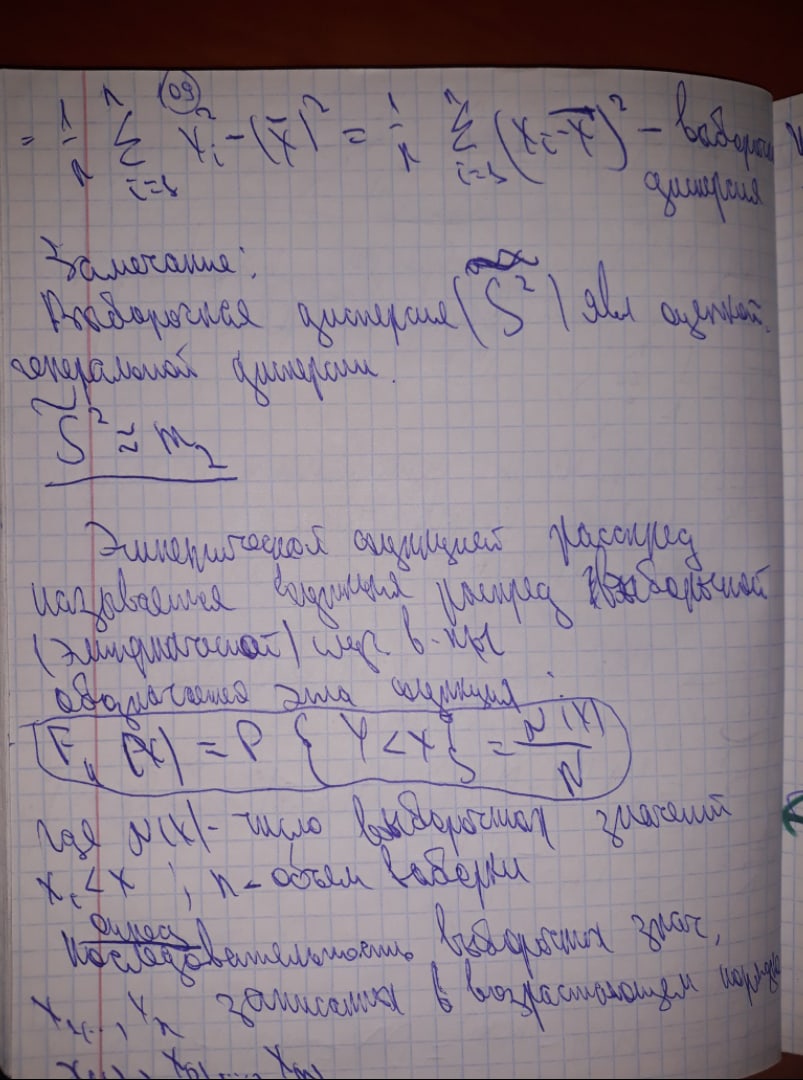 09
= 1/n Σ i=1 n x_i² - (x̄)² = 1/n Σ i=1 n (x_i - x̄)² - выбороч
дисперсия
Замечание:
Выборочная дисперсия (S̃²) явл оценкой
генеральной дисперсии.
S̃² ≈ m₂
Эмпирической функцией распред
называется функция распред выборочной
(эмпирической) случ в-ны
обозначения эта функция:
F_n(x) = P { Y < x } = N(x)/N
где N(x) - число выборочных значений
x_i < x ; n - объем выборки
опред
Последовательность выборочных знач,
x₁, ..., x_n записаных в возрастающем порядке